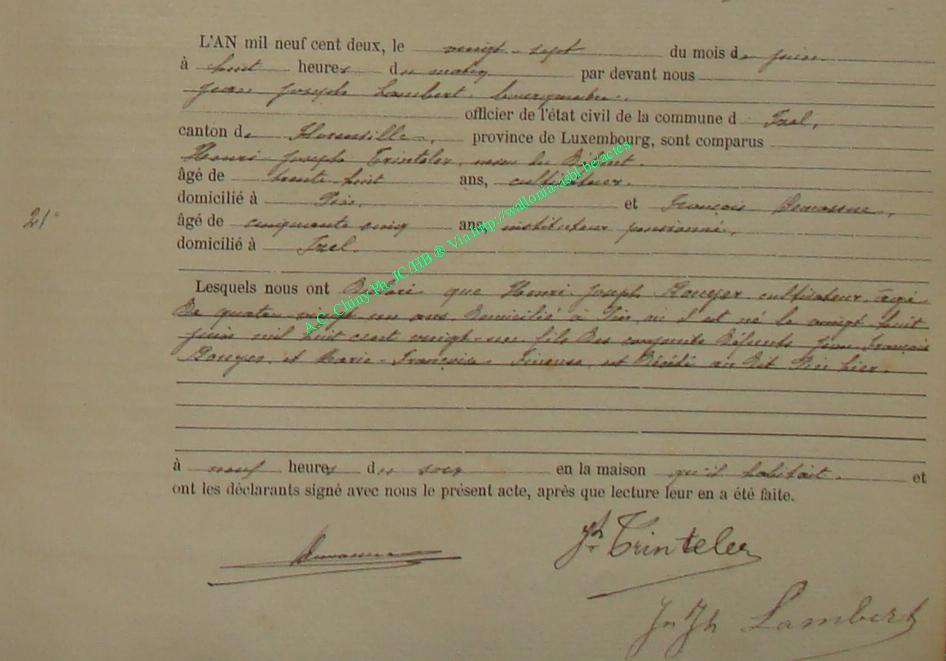 L'AN mil neuf cent deux, le vingt-sept du mois de juin
à huit heures du matin par devant nous
Jean Joseph Lambert, bourgmestre,
officier de l'état civil de la commune d Izel,
canton de Florenville, province de Luxembourg, sont comparus
Henri Joseph Trinteler, neveu du Défunt.
âgé de trente huit ans, cultivateur,
domicilié à Pin, et François Demasne,
21°
âgé de cinquante cinq ans, instituteur pensionné,
domicilié à Izel.
Lesquels nous ont Déclaré que Henri Joseph cultivateur, âgé
De quatre vingt un ans, Domicilié à Pin, où il est né le vingt huit
juin mil huit cent vingt-un fils Des conjoints Défunts Jean François
et Marie-Françoise est Décédé au Dit Pin hier,
à neuf heures du soir en la maison qu'il habitait. et
ont les déclarants signé avec nous le présent acte, après que lecture leur en a été faite.
Jh Trinteler
Jn Jh Lambert
A.C. Chiny Ph. JC/HB ® Via http://wallonia-asbl.be/actes